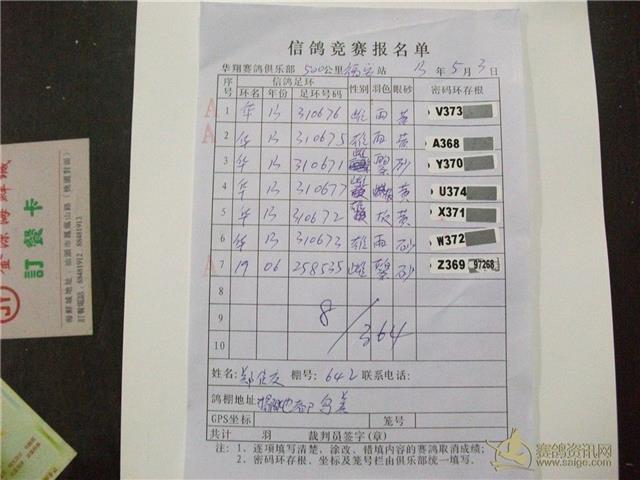 信鸽竞赛报名单
华翔赛鸽俱乐部 500公里 站 13 年 5 月 3 日
序号 信鸽足环 性别 羽色 眼砂 密码环存根
环名 年份 足环号码
A 1 华 13 310676 雌 雨 黄 V373
A 2 华 13 310675 雄 雨 黄 A368
3 华 13 310671 砂 Y370
4 华 13 310677 黄 U374
5 华 13 310672 灰 黄 X371
6 华 13 310673 雄 雨 砂 W372
A 7 19 06 258535 雌 砂 Z369 97268
8
9
10
8/364
姓名: 郑 棚号: 642 联系电话:
鸽棚地址:
GPS坐标 笼号
共计 羽 裁判员签字(章)
注: 1、逐项填写清楚，涂改、错填内容的赛鸽取消成绩;
2、密码环存根、坐标及笼号栏由俱乐部统一填写.
訂餐卡
海鮮城地址: 汕頭市鳳凰山路 (桃園對面)
訂餐電話: 88481912 88481912
赛鸽资讯网
www.saige.com